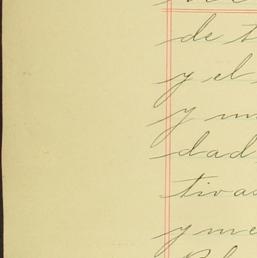 de t
y el
y un
dad
tiva
y me